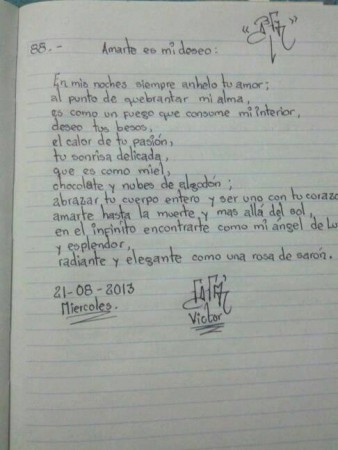 88.- Amarte es mi deseo:
En mis noches siempre anhelo tu amor;
al punto de quebrantar mi alma,
es como un fuego que consume mi interior,
deseo tus besos,
el calor de tu pasión,
tu sonrisa delicada,
que es como miel,
chocolate y nubes de algodón;
abrazar tu cuerpo entero y ser uno con tu corazo
amarte hasta la muerte y mas allá del sol,
en el infinito encontrarte como mi ángel de Lu
y esplendor,
radiante y elegante como una rosa de sarón.
21-08-2013
Miercoles.
Victor